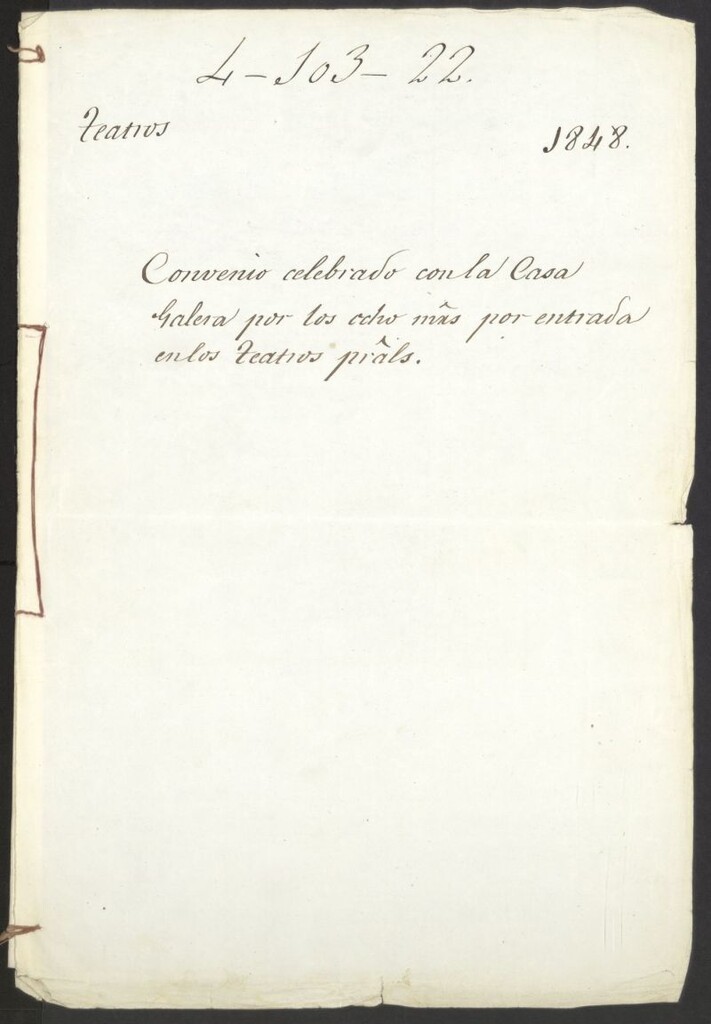 4-103-22.
Teatros
1848.
Convenio celebrado con la Casa
Galera por los ocho mrs̃ por entrada
en los Teatros prãls.